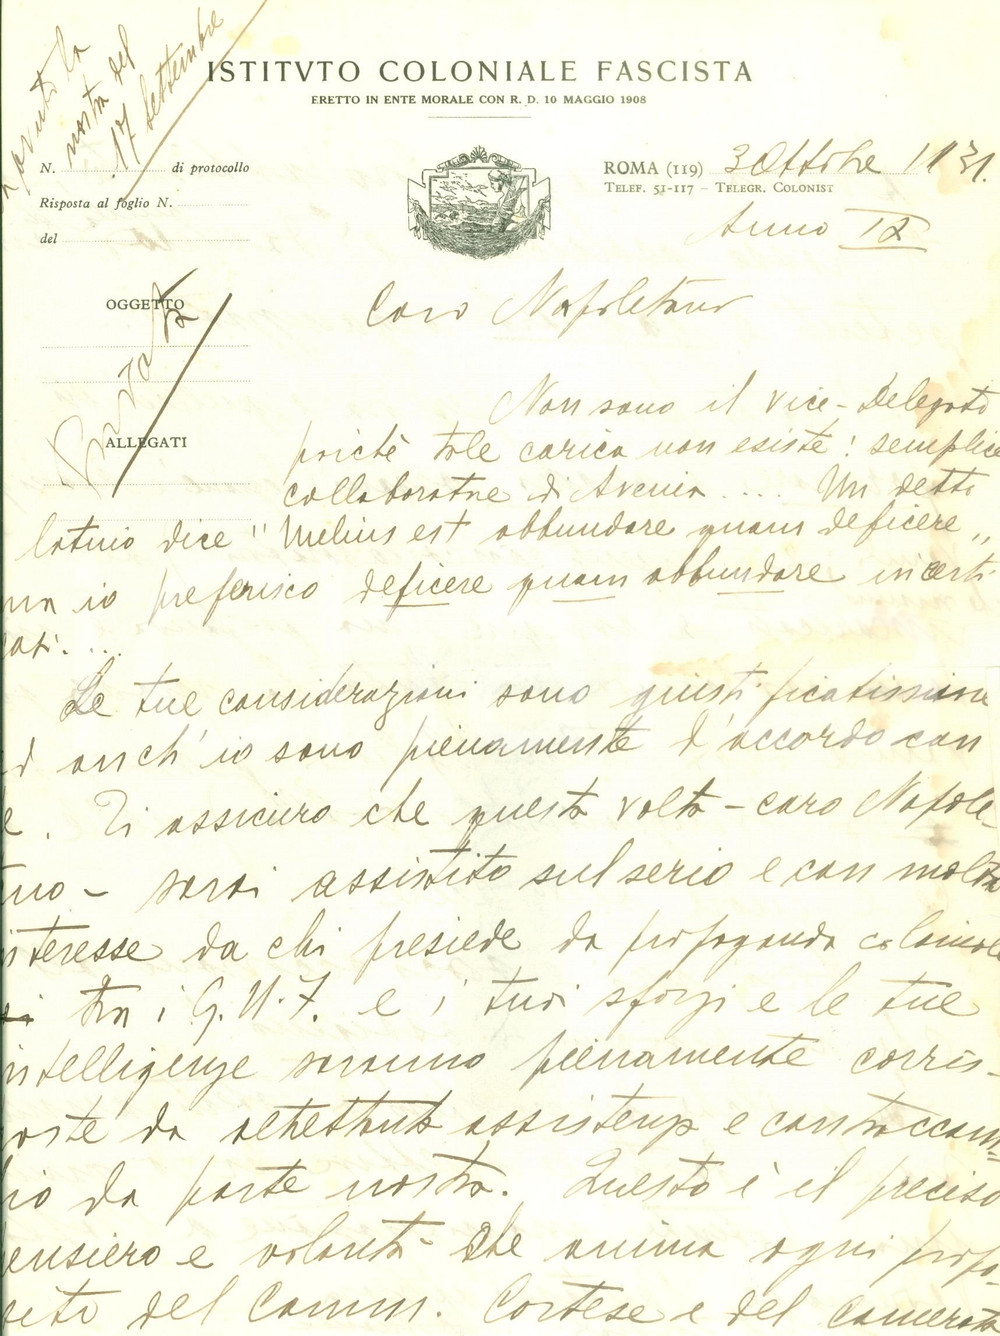 ricevuto la
nostra del
17 Settembre
ISTITVTO COLONIALE FASCISTA
ERETTO IN ENTE MORALE CON R. D. 10 MAGGIO 1908
N. di protocollo
Risposta al foglio N.
del
ROMA (119) 3 Ottobre 1931.
TELEF. 51-117 – TELEGR. COLONIST
Anno IX
OGGETTO
Privata
ALLEGATI
Caro Napoletano
Non sono il vice-Delegato
poichè tale carica non esiste! semplice
collaboratore di Avenia .... Un detto
latino dice "Melius est abbundare quam deficere"
ma io preferisco deficere quam abbundare in certi
casi....
Le tue considerazioni sono giustificatissime
ed anch'io sono pienamente d'accordo con
te. Ti assicuro che questa volta – caro Napole-
tano – sarai assistito sul serio e con molto
interesse da chi presiede la propaganda coloniale
tra i G.U.F. e i tuoi sforzi e le tue
intelligenze saranno pienamente corris-
poste da altrettanta assistenza e contraccam-
bio da parte nostra. Questo è il preciso
pensiero e volontà che anima ogni propo-
sito del Comm. Cortese e del camerata